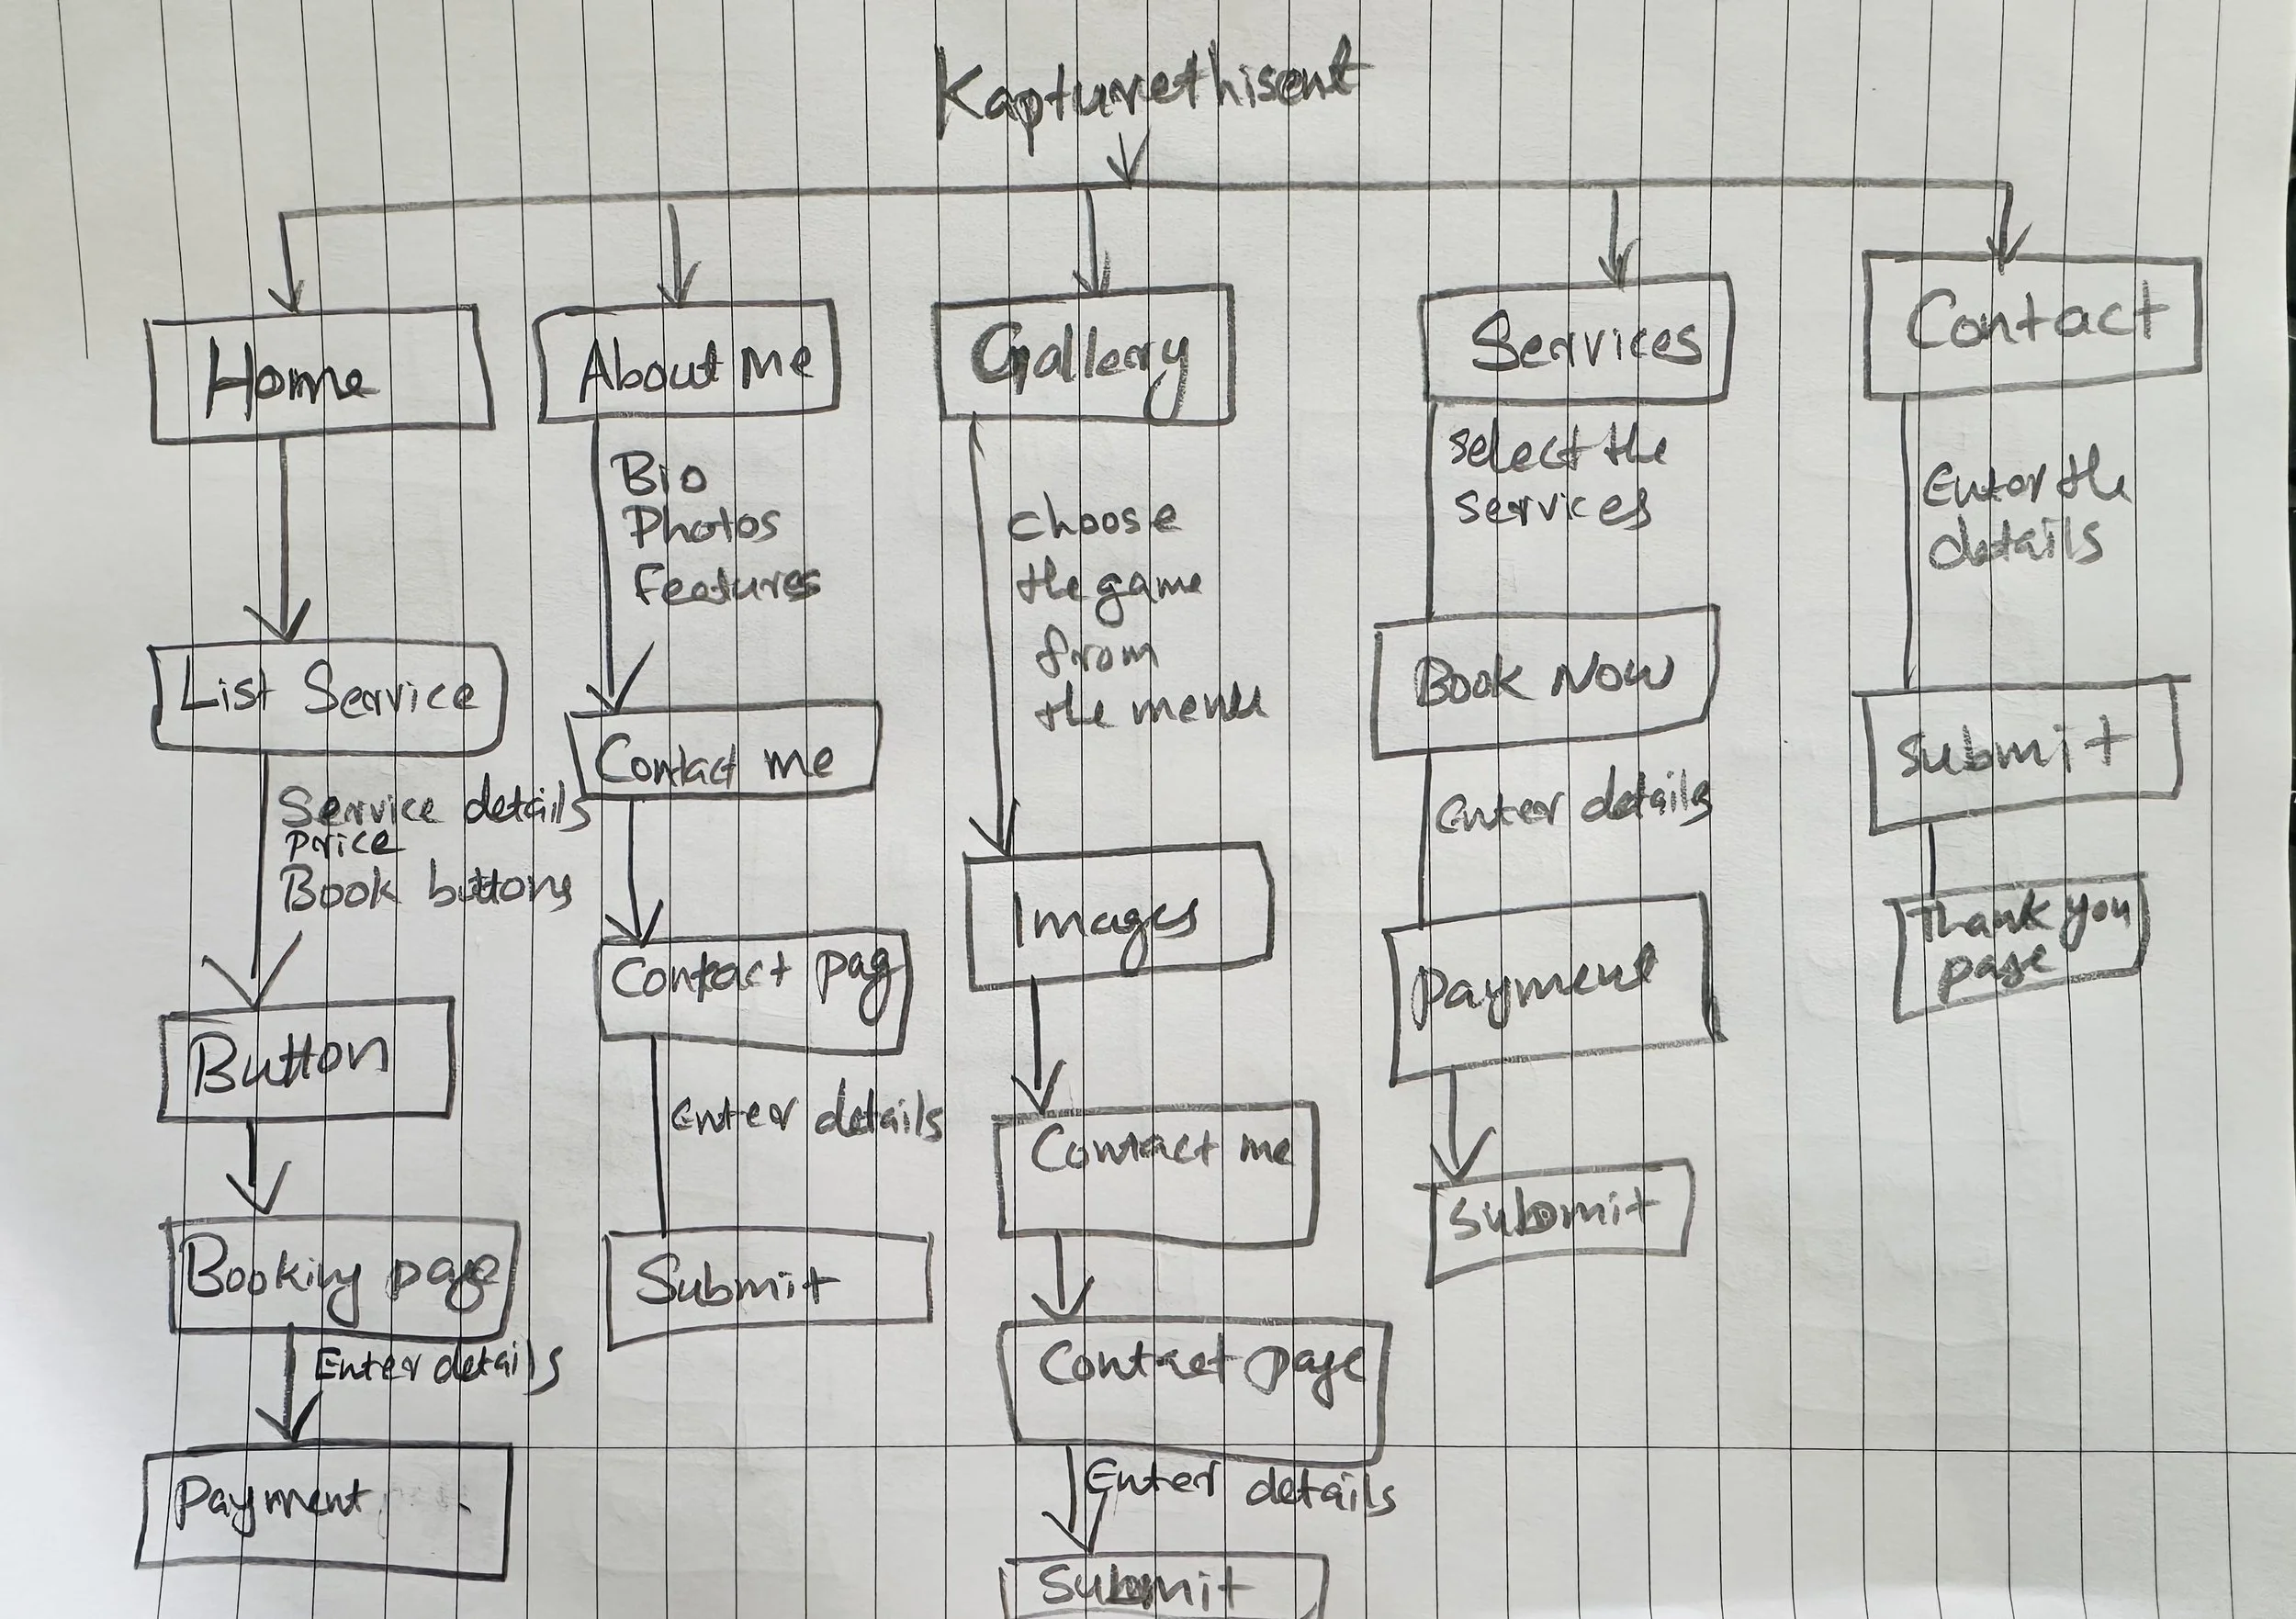 Kapturethisent
Home
About me
Gallery
Services
Contact
Bio
Photos
Features
choose
the game
from
the menu
select the
services
Enter the
details
List Service
Contact me
Book Now
submit
Service details
price
Book buttons
Contact pag
Images
Enter details
payment
Thank you
page
Button
Enter details
Contact me
submit
Booking page
Submit
Contact page
Enter details
Payment
Enter details
Submit